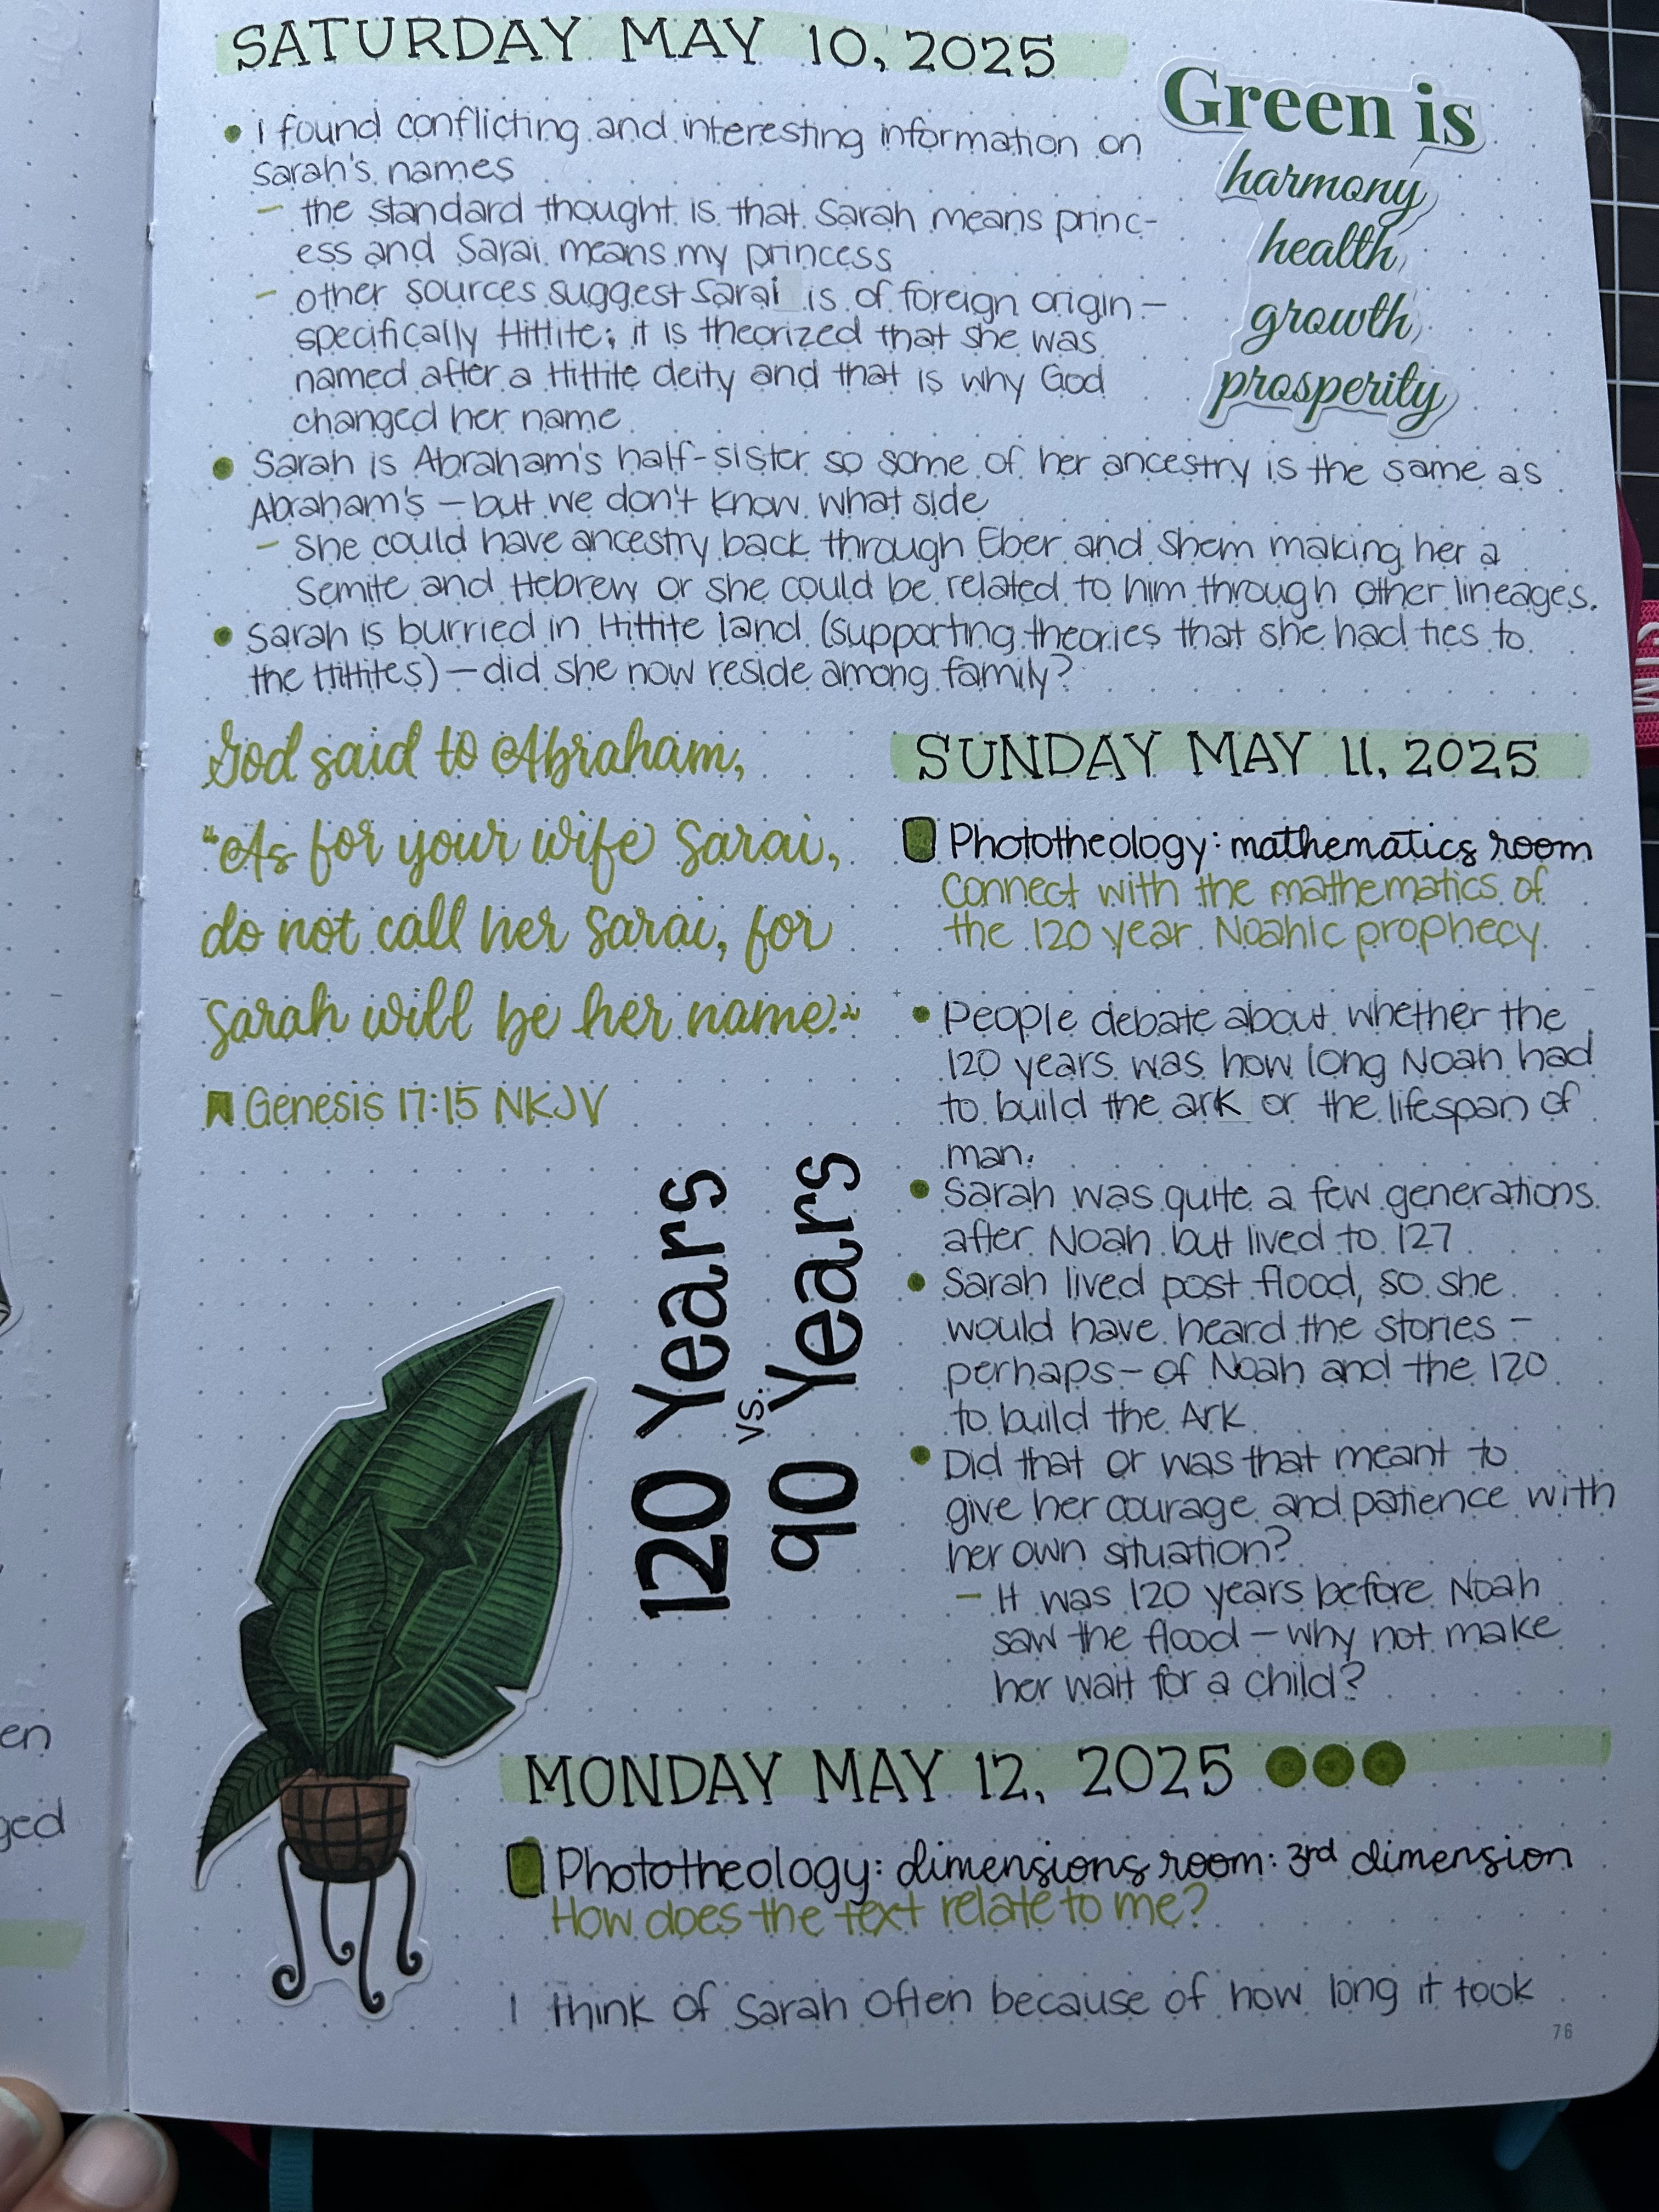 SATURDAY MAY 10, 2025
Green is
harmony
health
growth
prosperity
I found conflicting and interesting information on
Sarah's names
– the standard thought is that Sarah means princ-
ess and Sarai means my princess
– other sources suggest Sarai is of foreign origin –
specifically Hittite; it is theorized that she was
named after a Hittite deity and that is why God
changed her name
Sarah is Abraham's half-sister so some of her ancestry is the same as
Abraham's – but we don't know what side
– She could have ancestry back through Eber and Shem making her a
Semite and Hebrew or she could be related to him through other lineages.
Sarah is burried in Hittite land (supporting theories that she had ties to
the Hittites) – did she now reside among family?
God said to Abraham,
"As for your wife Sarai,
do not call her Sarai, for
Sarah will be her name."
Genesis 17:15 NKJV
120 Years
vs.
90 Years
SUNDAY MAY 11, 2025
Phototheology: mathematics room
Connect with the mathematics of
the 120 year Noahic prophecy.
People debate about whether the
120 years was how long Noah had
to build the ark or the lifespan of
man.
Sarah was quite a few generations
after Noah but lived to 127
Sarah lived post flood, so she
would have heard the stories –
perhaps – of Noah and the 120
to build the Ark
Did that or was that meant to
give her courage and patience with
her own situation?
– It was 120 years before Noah
saw the flood – why not make
her wait for a child?
MONDAY MAY 12, 2025
Phototheology: dimensions room: 3rd dimension
How does the text relate to me?
I think of Sarah often because of how long it took
76
en
ged